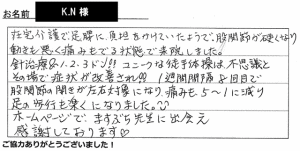 お名前 K.N 様
在宅介護で足腰に負担をかけていたようで、股関節が硬くなり
動きも悪く痛みもでる状態で来院しました。
針治療&1.2.3ドン!! ユニークな徒手体操は不思議と
その場で症状が改善され!!! 1週間間隔 8回目で
股関節の開きが左右対象になり、痛みも5~1に減り
足の歩行も楽になりました。
ホームページで、ますぶち先生に出会え
感謝しております♡
ご協力ありがとうございました!